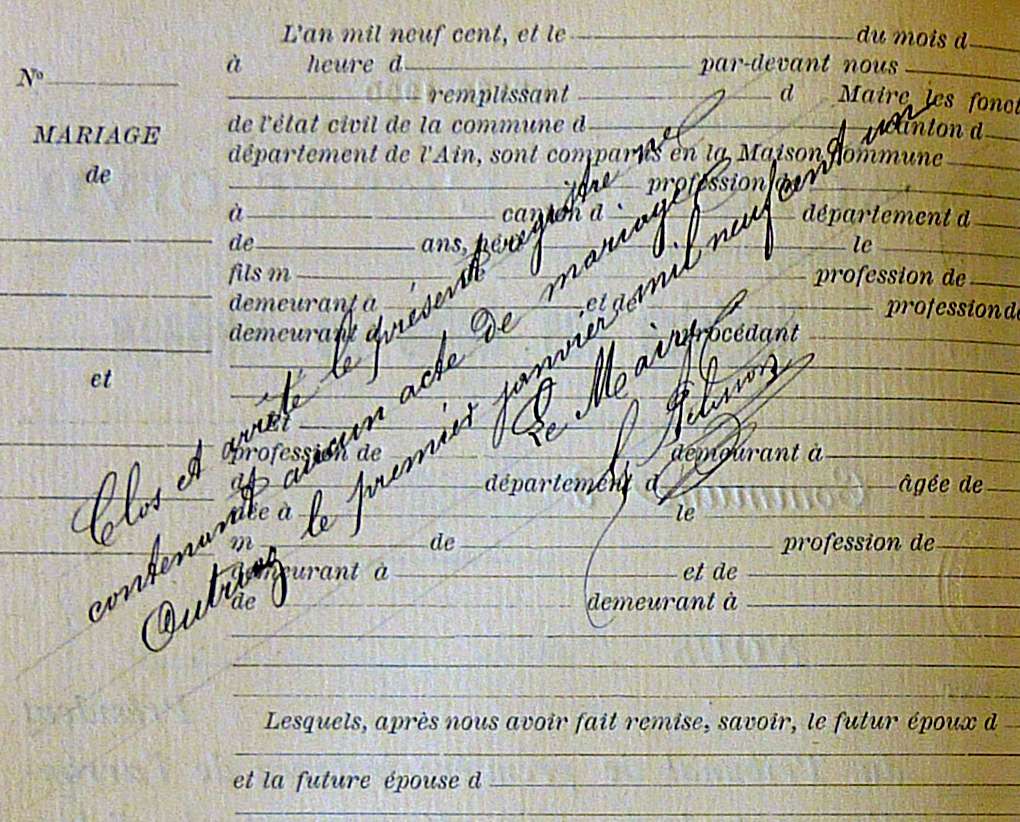 L'an mil neuf cent, et le du mois d
à heure d par-devant nous
Nº
remplissant d Maire les fonct
MARIAGE
de l'état civil de la commune d canton d
département de l'Ain, sont comparus en la Maison commune
de
profession d
à canton d département d
de ans, né à le
fils m de profession de
demeurant à et de profession de
demeurant à procédant
et
Et
profession de demeurant à
à département d âgée de
née à le
m de profession de
demeurant à et de
de demeurant à
Lesquels, après nous avoir fait remise, savoir, le futur époux d
et la future épouse d
Clos et arrêté le présent registre ne
contenant aucun acte de mariage
Outriaz le premier janvier mil neuf cent un
Le Maire